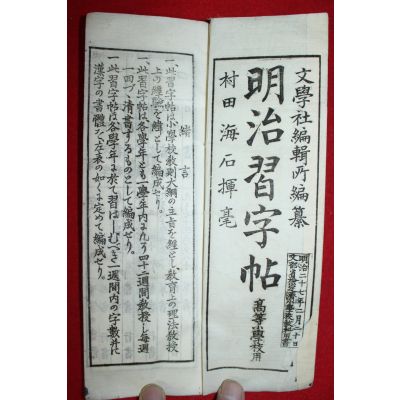 文學社編輯所編纂
明治習字帖
高等小學校用
村田海石揮毫
明治二十七年二月二十日
緒言
一、此習字帖は小學校教則大綱の主旨を經とし教育上の理法教授
上の經驗を緯として編成せり。
一、此習字帖は各學年とも一學年內凡そ四十二週間教授し每週
一四づゝ清書するものとして編成せり。
一、此習字帖は各學年に於て習はしむべき一週間內の字數并に
漢字の書體を左表の如くに定めて編成せり。